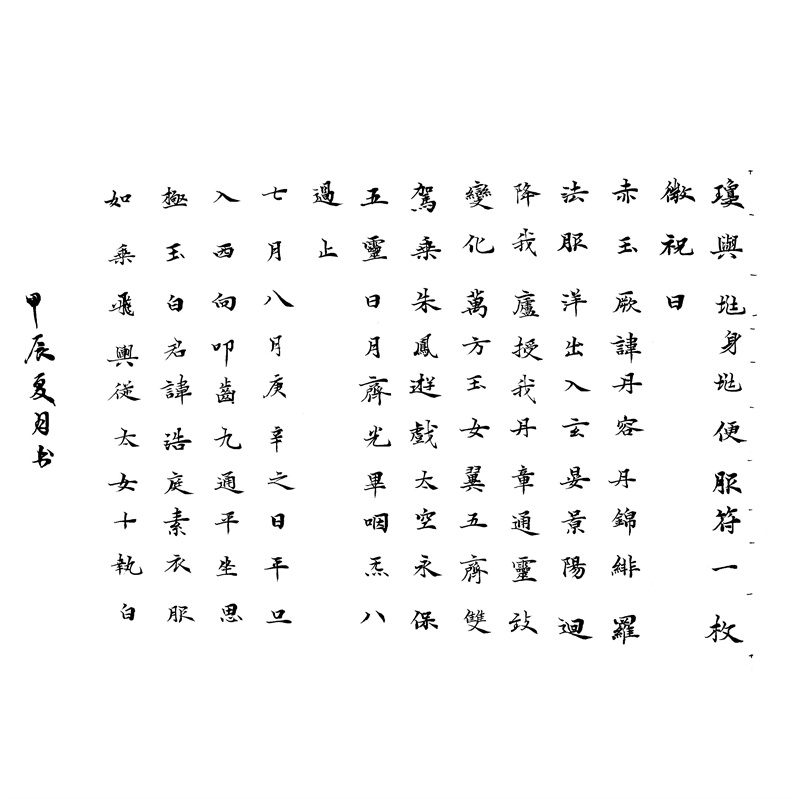 瓊與𡉏身𡉏便服符一枚
微祝曰
赤玉厥諱丹容丹錦緋羅
法服洋出入玄晏景陽迴
降我廬授我丹章通靈致
變化萬方玉女翼五齊雙
駕乗朱鳳遊戲太空永保
五靈日月齊光畢咽炁八
過止
七月八月庚辛之日平旦
入西向叩齒九通平坐思
極玉白君諱浩庭素衣服
如乗飛輿從太女十執白
甲辰夏月书